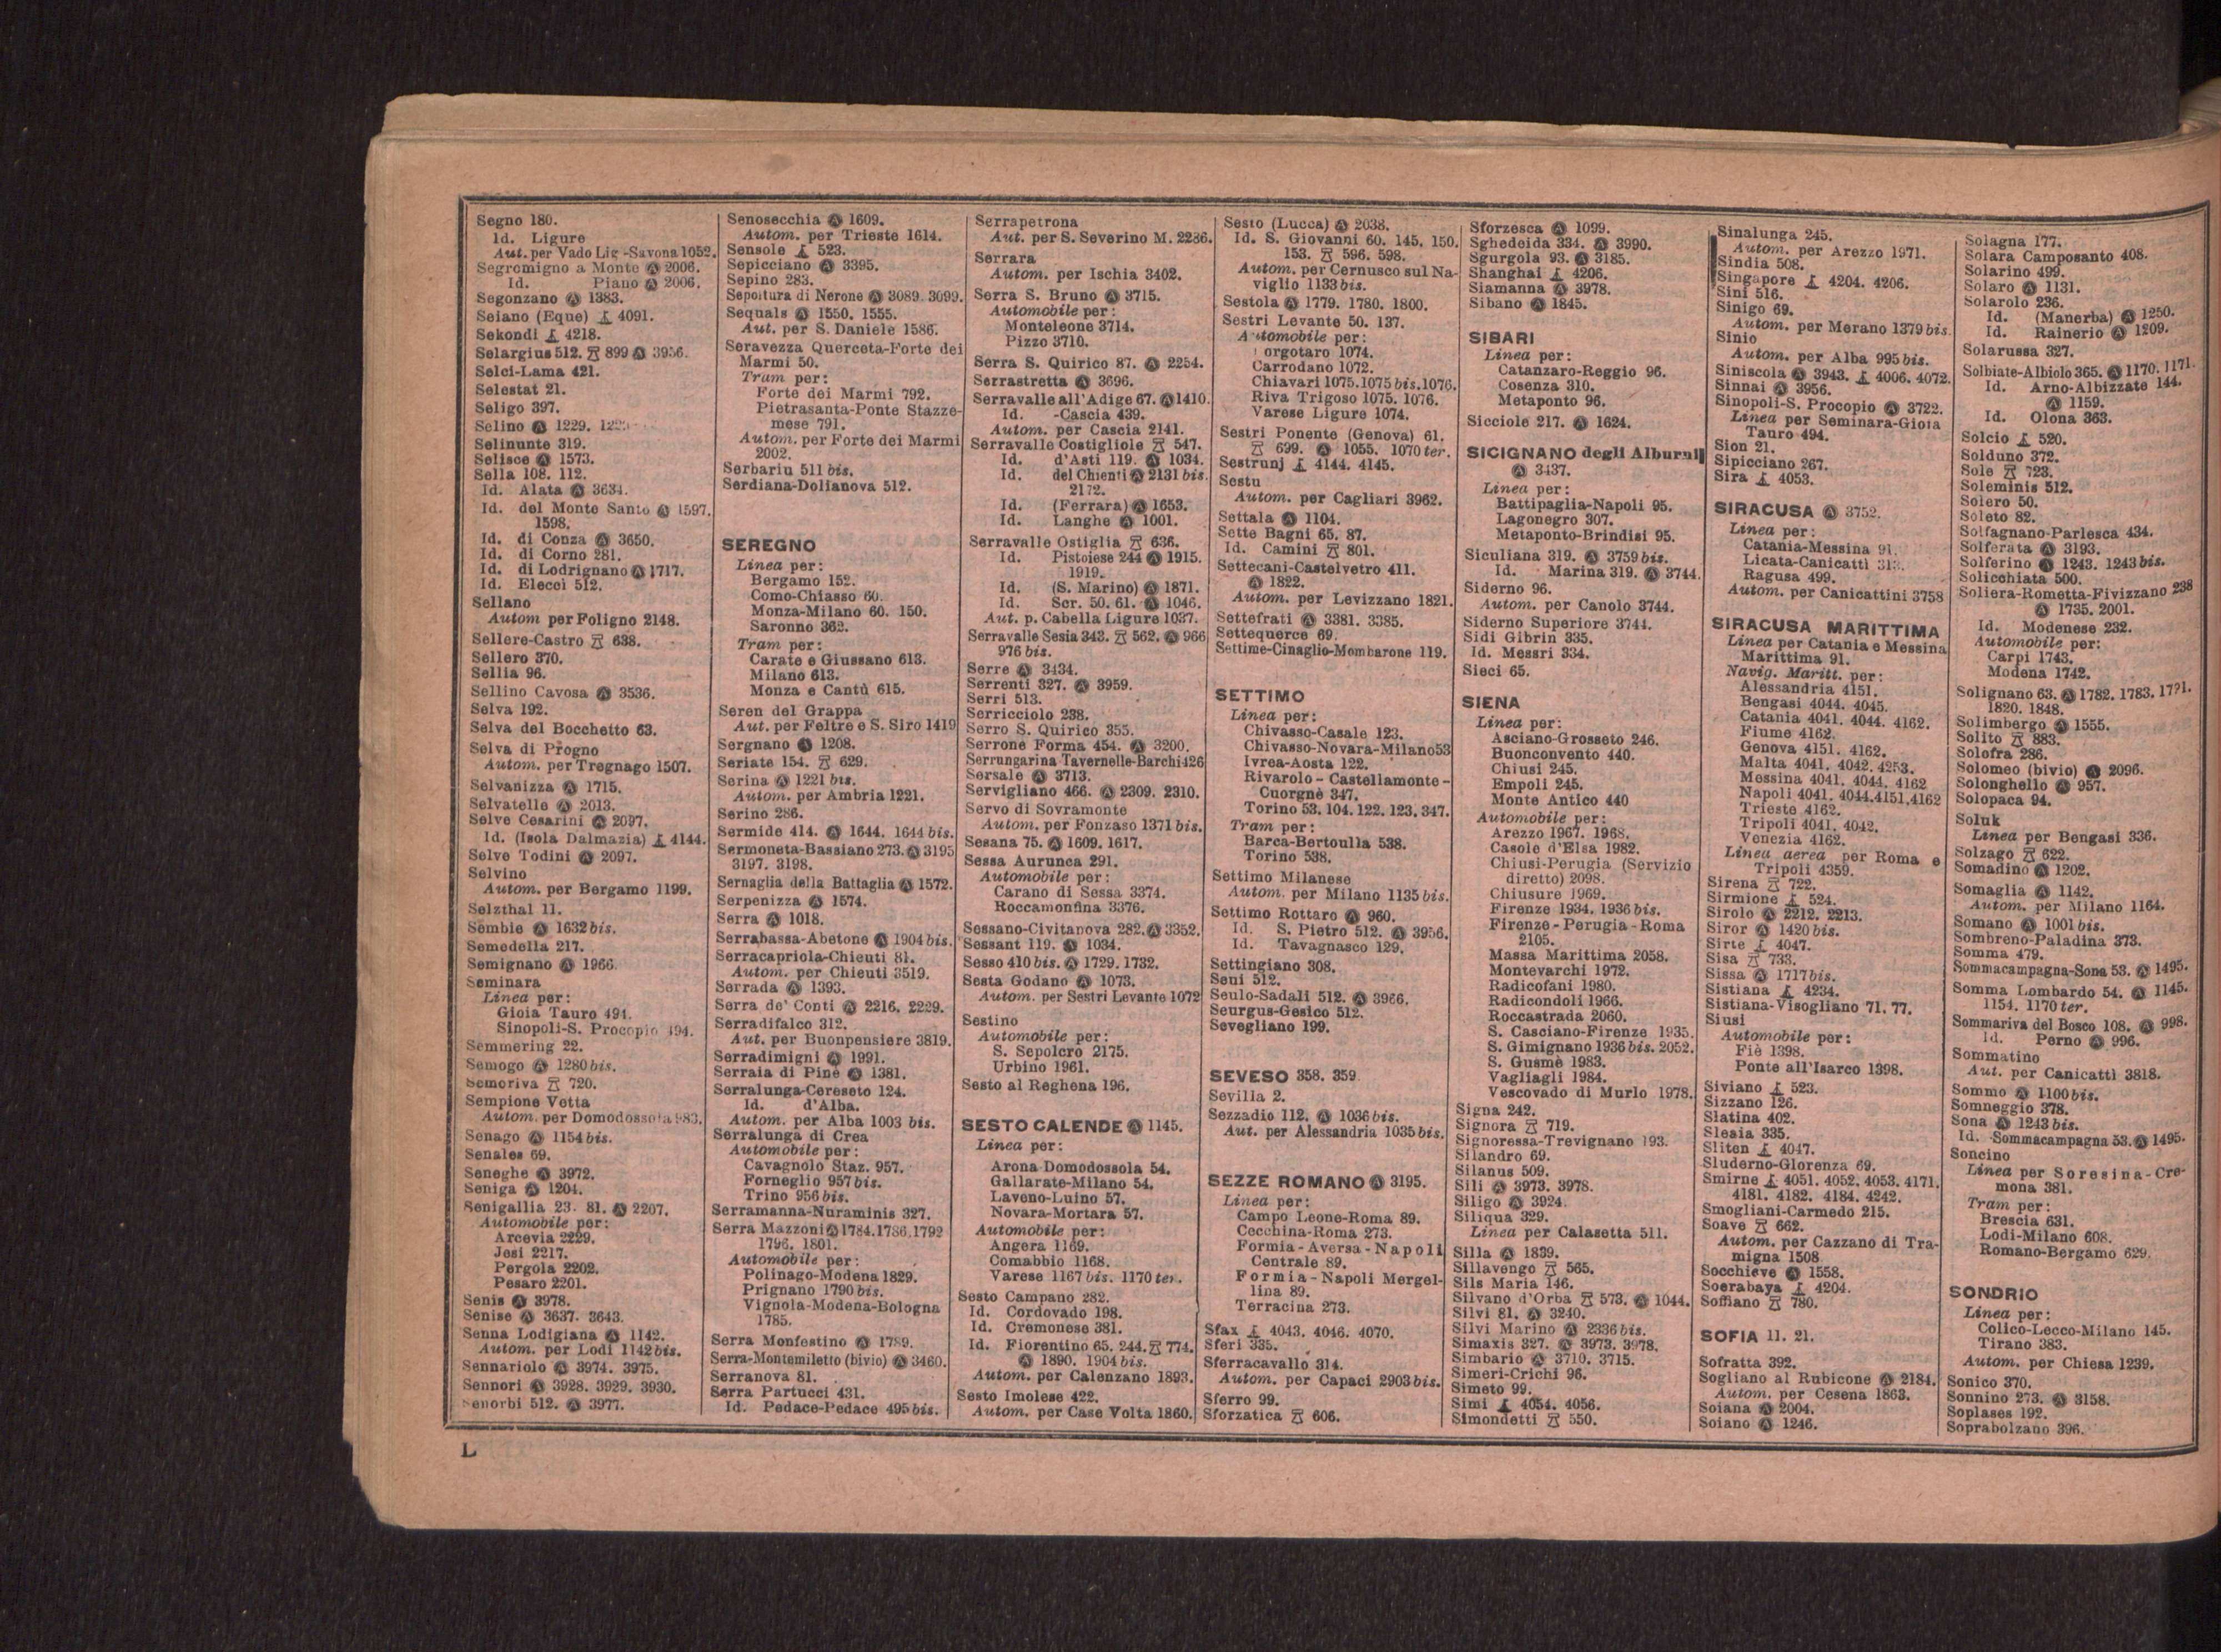 Segno 180.
Id. Ligure
Aut. per Vado Lig -Savona 1052.
Segromigno a Monte Ⓐ 2006.
Id. Piano Ⓐ 2006.
Segonzano Ⓐ 1383.
Seiano (Eque) ⚓ 4091.
Sekondi ⚓ 4218.
Selargius 512. 899 Ⓐ 3956.
Selci-Lama 421.
Selestat 21.
Seligo 397.
Selino Ⓐ 1229.
Selinunte 319.
Selisce Ⓐ 1573.
Sella 108. 112.
Id. Alata Ⓐ 3634.
Id. del Monte Santo Ⓐ 1597.
1598.
Id. di Conza Ⓐ 3650.
Id. di Corno 281.
Id. di Lodrignano Ⓐ 1717.
Id. Elecci 512.
Sellano
Autom per Foligno 2148.
Sellere-Castro 638.
Sellero 370.
Sellia 96.
Sellino Cavosa Ⓐ 3536.
Selva 192.
Selva del Bocchetto 63.
Selva di Progno
Autom. per Tregnago 1507.
Selvanizza Ⓐ 1715.
Selvatelle Ⓐ 2013.
Selve Cesarini Ⓐ 2097.
Id. (Isola Dalmazia) ⚓ 4144.
Selve Todini Ⓐ 2097.
Selvino
Autom. per Bergamo 1199.
Selzthal 11.
Sembie Ⓐ 1632 bis.
Semedella 217.
Semignano Ⓐ 1966.
Seminara
Linea per:
Gioia Tauro 494.
Sinopoli-S. Procopio 494.
Semmering 22.
Semogo Ⓐ 1280 bis.
Semoriva 720.
Sempione Vetta
Autom. per Domodossola 983.
Senago Ⓐ 1154 bis.
Senales 69.
Seneghe Ⓐ 3972.
Seniga Ⓐ 1204.
Senigallia 23. 81. Ⓐ 2207.
Automobile per:
Arcevia 2229.
Jesi 2217.
Pergola 2202.
Pesaro 2201.
Senis Ⓐ 3978.
Senise Ⓐ 3637. 3643.
Senna Lodigiana Ⓐ 1142.
Autom. per Lodi 1142 bis.
Sennariolo Ⓐ 3974. 3975.
Sennori Ⓐ 3928. 3929. 3930.
Senorbì 512. Ⓐ 3977.
Senosecchia Ⓐ 1609.
Autom. per Trieste 1614.
Sensole ⚓ 523.
Sepicciano Ⓐ 3395.
Sepino 283.
Sepoltura di Nerone Ⓐ 3089. 3099.
Sequals Ⓐ 1550. 1555.
Aut. per S. Daniele 1586.
Seravezza Querceta-Forte dei
Marmi 50.
Tram per:
Forte dei Marmi 792.
Pietrasanta-Ponte Stazze-
mese 791.
Autom. per Forte dei Marmi
2002.
Serbariu 511 bis.
Serdiana-Dolianova 512.
SEREGNO
Linea per:
Bergamo 152.
Como-Chiasso 60.
Monza-Milano 60. 150.
Saronno 362.
Tram per:
Carate e Giussano 613.
Milano 613.
Monza e Cantù 615.
Seren del Grappa
Aut. per Feltre e S. Siro 1419
Sergnano Ⓐ 1208.
Seriate 154. 629.
Serina Ⓐ 1221 bis.
Autom. per Ambria 1221.
Serino 286.
Sermide 414. Ⓐ 1644. 1644 bis.
Sermoneta-Bassiano 273. Ⓐ 3195
3197. 3198.
Sernaglia della Battaglia Ⓐ 1572.
Serpenizza Ⓐ 1574.
Serra Ⓐ 1018.
Serrabassa-Abetone Ⓐ 1904 bis.
Serracapriola-Chieuti 81.
Autom. per Chieuti 3519.
Serrada Ⓐ 1393.
Serra de' Conti Ⓐ 2216. 2229.
Serradifalco 312.
Aut. per Buonpensiere 3819.
Serradimigni Ⓐ 1991.
Serraia di Pinè Ⓐ 1381.
Serralunga-Cereseto 124.
Id. d'Alba.
Autom. per Alba 1003 bis.
Serralunga di Crea
Automobile per:
Cavagnolo Staz. 957.
Forneglio 957 bis.
Trino 956 bis.
Serramanna-Nuraminis 327.
Serra Mazzoni Ⓐ 1784. 1786. 1792
1796. 1801.
Automobile per:
Polinago-Modena 1829.
Prignano 1790 bis.
Vignola-Modena-Bologna
1785.
Serra Monfestino Ⓐ 1789.
Serra-Montemiletto (bivio) Ⓐ 3460.
Serranova 81.
Serra Partucci 431.
Id. Pedace-Pedace 495 bis.
Serrapetrona
Aut. per S. Severino M. 2286.
Serrara
Autom. per Ischia 3402.
Serra S. Bruno Ⓐ 3715.
Automobile per:
Monteleone 3714.
Pizzo 3710.
Serra S. Quirico 87. Ⓐ 2254.
Serrastretta Ⓐ 3696.
Serravalle all'Adige 67. Ⓐ 1410.
Id. -Cascia 439.
Autom. per Cascia 2141.
Serravalle Costigliole 547.
Id. d'Asti 119. Ⓐ 1034.
Id. del Chienti Ⓐ 2131 bis.
2172.
Id. (Ferrara) Ⓐ 1653.
Id. Langhe Ⓐ 1001.
Serravalle Ostiglia 636.
Id. Pistoiese 244 Ⓐ 1915.
1919.
Id. (S. Marino) Ⓐ 1871.
Id. Scr. 50. 61. Ⓐ 1046.
Aut. p. Cabella Ligure 1037.
Serravalle Sesia 343. 562. Ⓐ 966
976 bis.
Serre Ⓐ 3434.
Serrenti 327. Ⓐ 3959.
Serri 513.
Serricciolo 238.
Serro S. Quirico 355.
Serrone Forma 454. Ⓐ 3200.
Serrungarina Tavernelle-Barchi 426
Sersale Ⓐ 3713.
Servigliano 466. Ⓐ 2309. 2310.
Servo di Sovramonte
Autom. per Fonzaso 1371 bis.
Sesana 75. Ⓐ 1609. 1617.
Sessa Aurunca 291.
Automobile per:
Carano di Sessa 3374.
Roccamonfina 3376.
Sessano-Civitanova 282. Ⓐ 3352.
Sessant 119. Ⓐ 1034.
Sesso 410 bis. Ⓐ 1729. 1732.
Sesta Godano Ⓐ 1073.
Autom. per Sestri Levante 1072
Sestino
Automobile per:
S. Sepolcro 2175.
Urbino 1961.
Sesto al Reghena 196.
SESTO CALENDE Ⓐ 1145.
Linea per:
Arona Domodossola 54.
Gallarate-Milano 54.
Laveno-Luino 57.
Novara-Mortara 57.
Automobile per:
Angera 1169.
Comabbio 1168.
Varese 1167 bis. 1170 ter.
Sesto Campano 282.
Id. Cordovado 198.
Id. Cremonese 381.
Id. Fiorentino 65. 244. 774.
Ⓐ 1890. 1904 bis.
Autom. per Calenzano 1893.
Sesto Imolese 422.
Autom. per Case Volta 1860.
Sesto (Lucca) Ⓐ 2038.
Id. S. Giovanni 60. 145. 150.
153. 596. 598.
Autom. per Cernusco sul Na-
viglio 1133 bis.
Sestola Ⓐ 1779. 1780. 1800.
Sestri Levante 50. 137.
Automobile per:
orgotaro 1074.
Carrodano 1072.
Chiavari 1075. 1075 bis. 1076.
Riva Trigoso 1075. 1076.
Varese Ligure 1074.
Sestri Ponente (Genova) 61.
699. Ⓐ 1055. 1070 ter.
Sestrunj ⚓ 4144. 4145.
Sestu
Autom. per Cagliari 3962.
Settala Ⓐ 1104.
Sette Bagni 65. 87.
Id. Camini 801.
Settecani-Castelvetro 411.
Ⓐ 1822.
Autom. per Levizzano 1821.
Settefrati Ⓐ 3381. 3385.
Settequerce 69.
Settime-Cinaglio-Mombarone 119.
SETTIMO
Linea per:
Chivasso-Casale 123.
Chivasso-Novara-Milano 53
Ivrea-Aosta 122.
Rivarolo - Castellamonte -
Cuorgnè 347.
Torino 53. 104. 122. 123. 347.
Tram per:
Barca-Bertoulla 538.
Torino 538.
Settimo Milanese
Autom. per Milano 1135 bis.
Settimo Rottaro Ⓐ 960.
Id. S. Pietro 512. Ⓐ 3956.
Id. Tavagnasco 129.
Settingiano 308.
Seui 512.
Seulo-Sadali 512. Ⓐ 3966.
Seurgus-Gesico 512.
Sevegliano 199.
SEVESO 358. 359
Sevilla 2.
Sezzadio 112. Ⓐ 1036 bis.
Aut. per Alessandria 1035 bis.
SEZZE ROMANO Ⓐ 3195.
Linea per:
Campo Leone-Roma 89.
Cecchina-Roma 273.
Formia - Aversa - Napoli
Centrale 89.
Formia - Napoli Mergel-
lina 89.
Terracina 273.
Sfax ⚓ 4043. 4046. 4070.
Sferi 335.
Sferracavallo 314.
Autom. per Capaci 2903 bis.
Sferro 99.
Sforzatica 606.
Sforzesca Ⓐ 1099.
Sghedeida 334. Ⓐ 3990.
Sgurgola 93. Ⓐ 3185.
Shanghai ⚓ 4206.
Siamanna Ⓐ 3978.
Sibano Ⓐ 1845.
SIBARI
Linea per:
Catanzaro-Reggio 96.
Cosenza 310.
Metaponto 96.
Sicciole 217. Ⓐ 1624.
SICIGNANO degli Alburni
Ⓐ 3437.
Linea per:
Battipaglia-Napoli 95.
Lagonegro 307.
Metaponto-Brindisi 95.
Siculiana 319. Ⓐ 3759 bis.
Id. Marina 319. Ⓐ 3744.
Siderno 96.
Autom. per Canolo 3744.
Siderno Superiore 3744.
Sidi Gibrin 335.
Id. Messri 334.
Sieci 65.
SIENA
Linea per:
Asciano-Grosseto 246.
Buonconvento 440.
Chiusi 245.
Empoli 245.
Monte Antico 440
Automobile per:
Arezzo 1967. 1968.
Casole d'Elsa 1982.
Chiusi-Perugia (Servizio
diretto) 2098.
Chiusure 1969.
Firenze 1934. 1936 bis.
Firenze - Perugia - Roma
2105.
Massa Marittima 2058.
Montevarchi 1972.
Radicofani 1980.
Radicondoli 1966.
Roccastrada 2060.
S. Casciano-Firenze 1935.
S. Gimignano 1936 bis. 2052.
S. Gusmè 1983.
Vagliagli 1984.
Vescovado di Murlo 1978.
Signa 242.
Signora 719.
Signoressa-Trevignano 193.
Silandro 69.
Silanus 509.
Sili Ⓐ 3973. 3978.
Siligo Ⓐ 3924.
Siliqua 329.
Linea per Calasetta 511.
Silla Ⓐ 1839.
Sillavengo 565.
Sils Maria 146.
Silvano d'Orba 573. Ⓐ 1044.
Silvi 81. Ⓐ 3240.
Silvi Marino Ⓐ 2336 bis.
Simaxis 327. Ⓐ 3973. 3978.
Simbario Ⓐ 3710. 3715.
Simeri-Crichi 96.
Simeto 99.
Simi ⚓ 4054. 4056.
Simondetti 550.
Sinalunga 245.
Autom. per Arezzo 1971.
Sindia 508.
Singapore ⚓ 4204. 4206.
Sini 516.
Sinigo 69.
Autom. per Merano 1379 bis.
Sinio
Autom. per Alba 995 bis.
Siniscola Ⓐ 3943. ⚓ 4006. 4072.
Sinnai Ⓐ 3956.
Sinopoli-S. Procopio Ⓐ 3722.
Linea per Seminara-Gioia
Tauro 494.
Sion 21.
Sipicciano 267.
Sira ⚓ 4053.
SIRACUSA Ⓐ 3752.
Linea per:
Catania-Messina 91.
Licata-Canicattì 313.
Ragusa 499.
Autom. per Canicattini 3758
SIRACUSA MARITTIMA
Linea per Catania e Messina
Marittima 91.
Navig. Maritt. per:
Alessandria 4151.
Bengasi 4044. 4045.
Catania 4041. 4044. 4162.
Fiume 4162.
Genova 4151. 4162.
Malta 4041. 4042. 4253.
Messina 4041. 4044. 4162
Napoli 4041. 4044. 4151. 4162
Trieste 4162.
Tripoli 4041. 4042.
Venezia 4162.
Linea aerea per Roma e
Tripoli 4359.
Sirena 722.
Sirmione ⚓ 524.
Sirolo Ⓐ 2212. 2213.
Siror Ⓐ 1420 bis.
Sirte ⚓ 4047.
Sisa 733.
Sissa Ⓐ 1717 bis.
Sistiana ⚓ 4234.
Sistiana-Visogliano 71. 77.
Siusi
Automobile per:
Fiè 1398.
Ponte all'Isarco 1398.
Siviano ⚓ 523.
Sizzano 126.
Slatina 402.
Slesia 335.
Sliten ⚓ 4047.
Sluderno-Glorenza 69.
Smirne ⚓ 4051. 4052. 4053. 4171.
4181. 4182. 4184. 4242.
Smogliani-Carmedo 215.
Soave 662.
Autom. per Cazzano di Tra-
migna 1508
Socchieve Ⓐ 1558.
Soerabaya ⚓ 4204.
Soffiano 780.
SOFIA 11. 21.
Sofratta 392.
Sogliano al Rubicone Ⓐ 2184.
Autom. per Cesena 1863.
Soiana Ⓐ 2004.
Soiano Ⓐ 1246.
Solagna 177.
Solara Camposanto 408.
Solarino 499.
Solaro Ⓐ 1131.
Solarolo 236.
Id. (Manerba) Ⓐ 1250.
Id. Rainerio Ⓐ 1209.
Solarussa 327.
Solbiate-Albiolo 365. Ⓐ 1170. 1171.
Id. Arno-Albizzate 144.
Ⓐ 1159.
Id. Olona 363.
Solcio ⚓ 520.
Solduno 372.
Sole 723.
Soleminis 512.
Solero 50.
Soleto 82.
Solfagnano-Parlesca 434.
Solferata Ⓐ 3193.
Solferino Ⓐ 1243. 1243 bis.
Solicchiata 500.
Soliera-Rometta-Fivizzano 238
Ⓐ 1735. 2001.
Id. Modenese 232.
Automobile per:
Carpi 1743.
Modena 1742.
Solignano 63. Ⓐ 1782. 1783. 1791.
1820. 1848.
Solimbergo Ⓐ 1555.
Solito 883.
Solofra 286.
Solomeo (bivio) Ⓐ 2096.
Solonghello Ⓐ 957.
Solopaca 94.
Soluk
Linea per Bengasi 336.
Solzago 622.
Somadino Ⓐ 1202.
Somaglia Ⓐ 1142.
Autom. per Milano 1164.
Somano Ⓐ 1001 bis.
Sombreno-Paladina 373.
Somma 479.
Sommacampagna-Sona 53. Ⓐ 1495.
Somma Lombardo 54. Ⓐ 1145.
1154. 1170 ter.
Sommariva del Bosco 108. Ⓐ 998.
Id. Perno Ⓐ 996.
Sommatino
Aut. per Canicattì 3818.
Sommo Ⓐ 1100 bis.
Somneggio 378.
Sona Ⓐ 1243 bis.
Id. Sommacampagna 53. Ⓐ 1495.
Soncino
Linea per Soresina-Cre-
mona 381.
Tram per:
Brescia 631.
Lodi-Milano 608.
Romano-Bergamo 629.
SONDRIO
Linea per:
Colico-Lecco-Milano 145.
Tirano 383.
Autom. per Chiesa 1239.
Sonico 370.
Sonnino 273. Ⓐ 3158.
Soplases 192.
Soprabolzano 396.
L